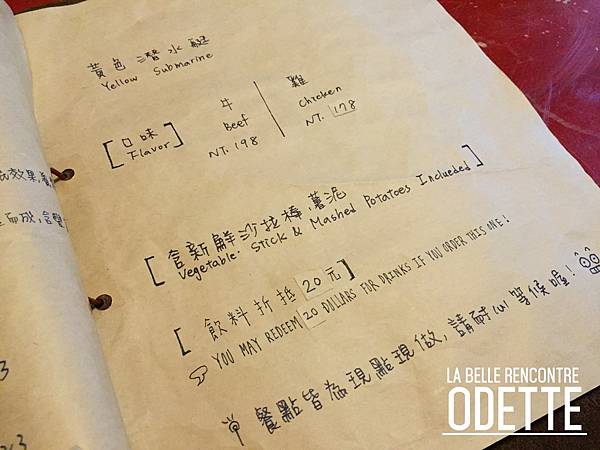 黃色潛水艇
Yellow Submarine
[口味] 牛 雞
Flavor Beef Chicken
NT. 198 NT. 178
[含新鮮沙拉棒、薯泥]
Vegetable. Stick & Mashed Potatoes Inclueded
[飲料折抵20元]
YOU MAY REDEEM 20 DOLLARS FOR DRINKS IF YOU ORDER THIS ONE!
餐點皆為現點現做,請耐心等候喔!
LA BELLE RENCONTRE
ODETTE